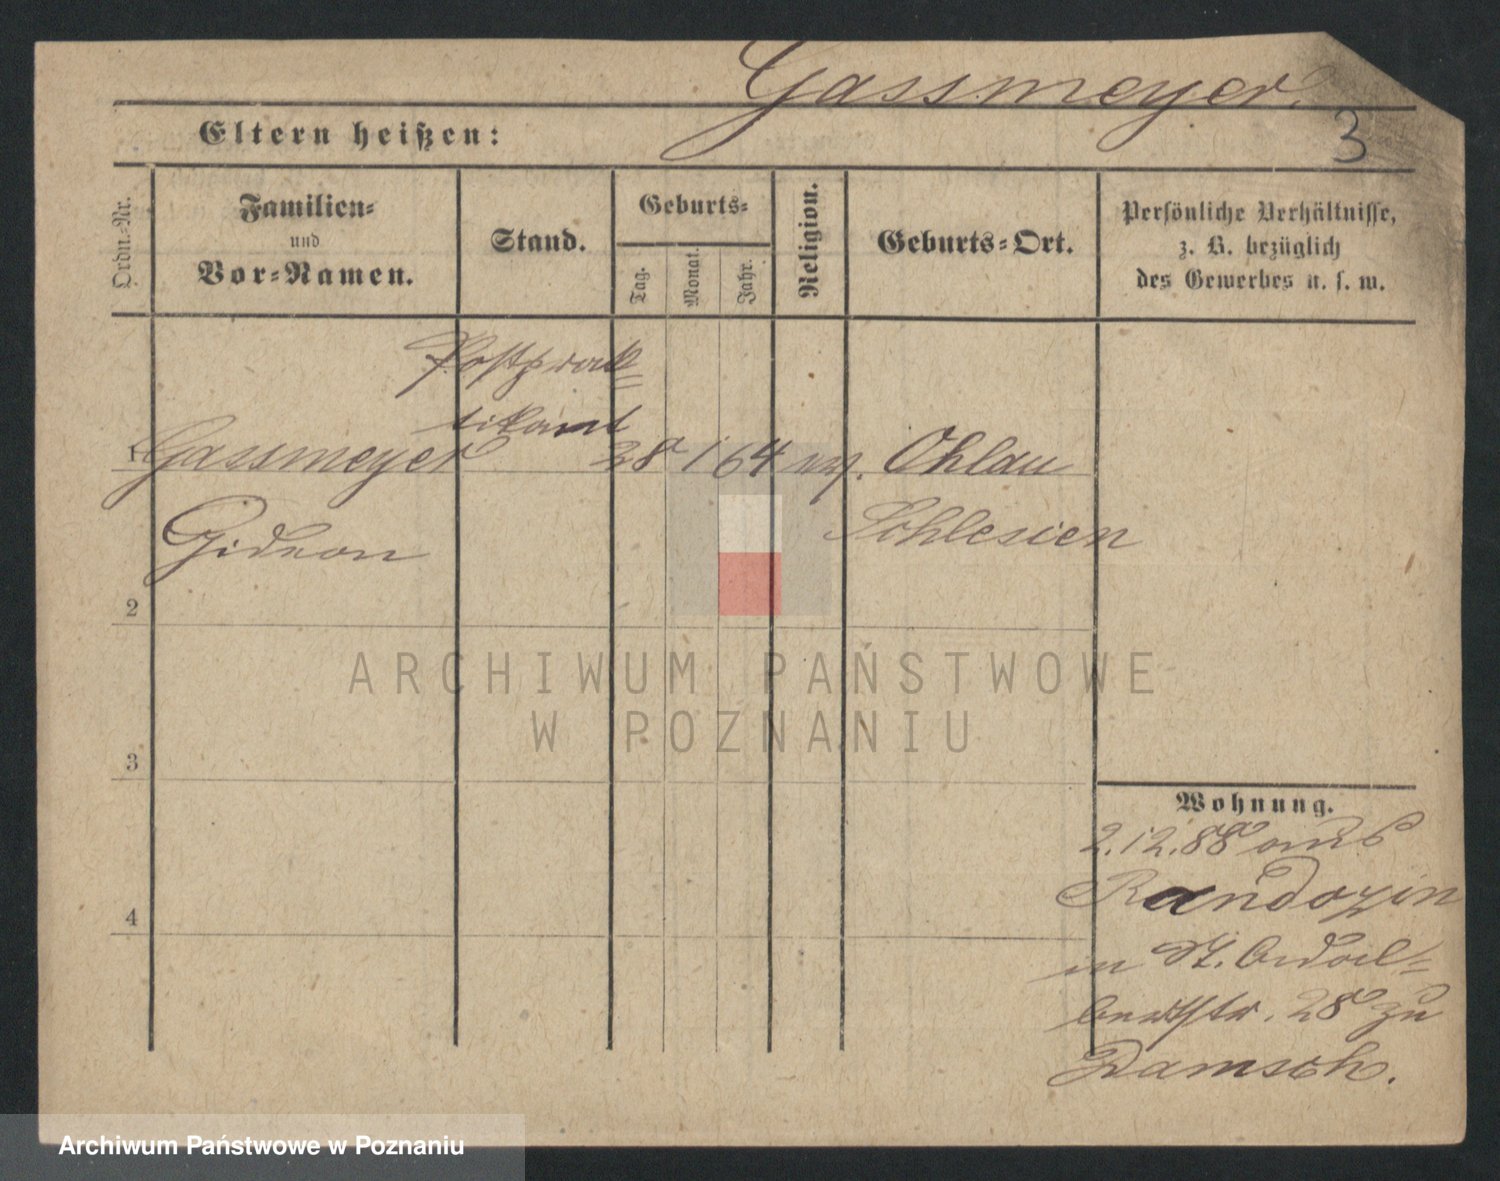 Gassmeyer.
3
Eltern heißen:
Ordn.-Nr.
Familien- und Vor-Namen.
Stand.
Geburts-
Tag.
Monat.
Jahr.
Religion.
Geburts-Ort.
Persönliche Verhältnisse,
z. B. bezüglich
des Gewerbes u. s. w.
Postprak-
tikant
1 Gassmeyer 28 1 64 ev. Ohlau
Gideon Schlesien
2
3
4
ARCHIWUM PAŃSTWOWE
W POZNANIU
Wohnung.
2.12.88 aus
in St. Adal-
bertstr. 28 zu
Damsch.
Archiwum Państwowe w Poznaniu